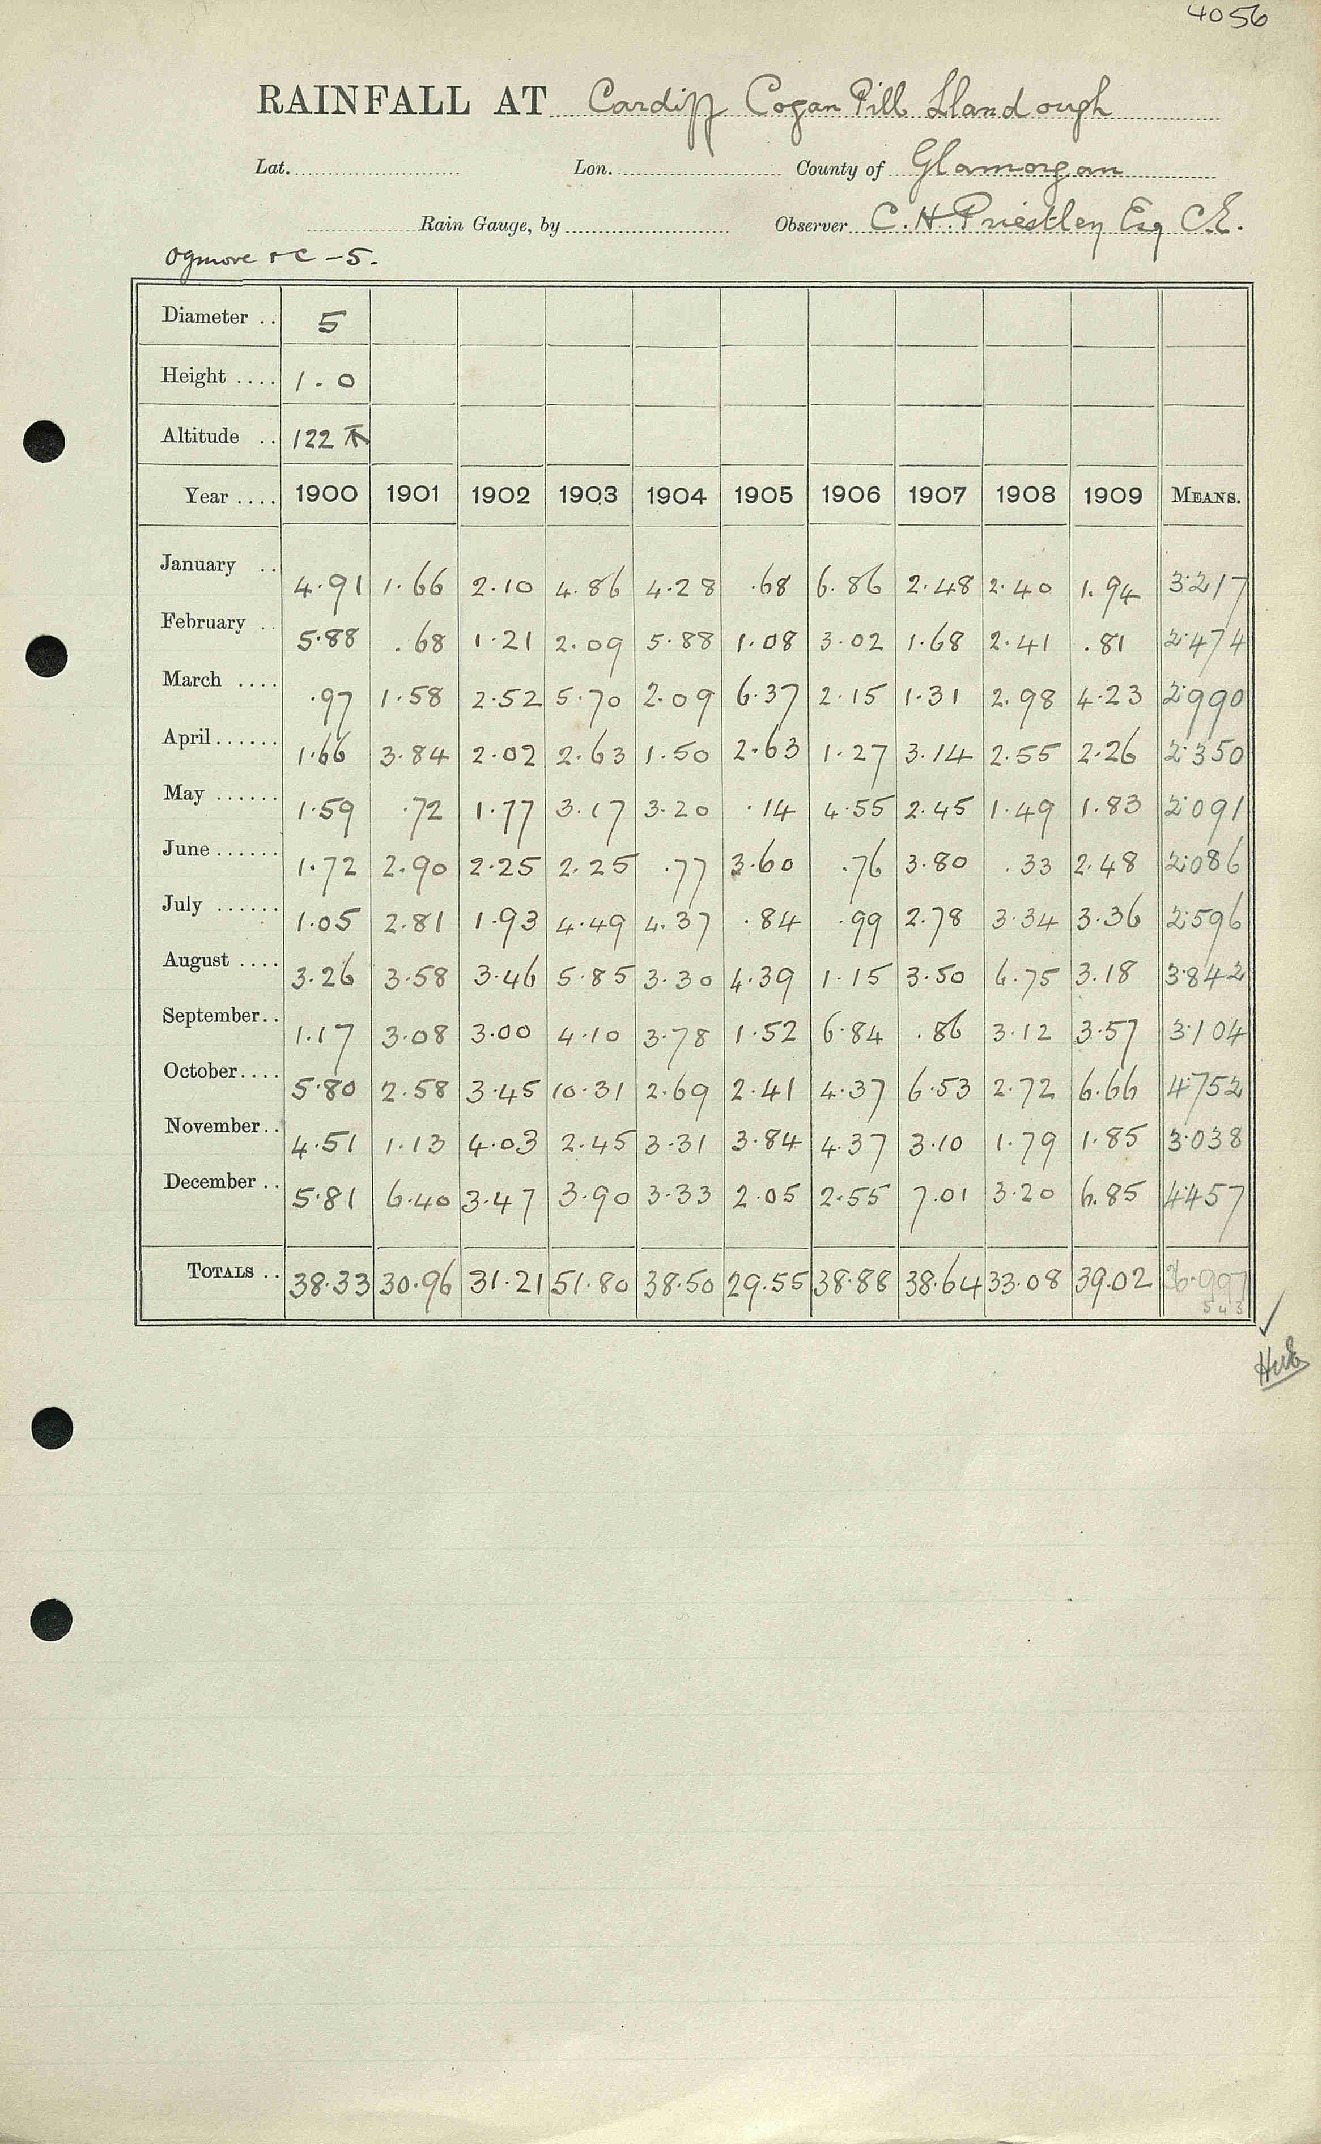 4056
RAINFALL AT Cardiff Cogan Pill Llandough
Lat. Lon. County of Glamorgan
Rain Gauge, by Observer C. H. Priestley Esq C.E.
Ogmore & C - 5.
Diameter .. 5
Height .... 1.0
Altitude .. 122
Year .... 1900 1901 1902 1903 1904 1905 1906 1907 1908 1909 MEANS.
January .. 4.91 1.66 2.10 4.86 4.28 .68 6.86 2.48 2.40 1.94 3.217
February .. 5.88 .68 1.21 2.09 5.88 1.08 3.02 1.68 2.41 .81 2.474
March .... .97 1.58 2.52 5.70 2.09 6.37 2.15 1.31 2.98 4.23 2.990
April...... 1.66 3.84 2.02 2.63 1.50 2.63 1.27 3.14 2.55 2.26 2.350
May ...... 1.59 .72 1.77 3.17 3.20 .14 4.55 2.45 1.49 1.83 2.091
June...... 1.72 2.90 2.25 2.25 .77 3.60 .76 3.80 .33 2.48 2.086
July ...... 1.05 2.81 1.93 4.49 4.37 .84 .99 2.78 3.34 3.36 2.596
August .... 3.26 3.58 3.46 5.85 3.30 4.39 1.15 3.50 6.75 3.18 3.842
September.. 1.17 3.08 3.00 4.10 3.78 1.52 6.84 .86 3.12 3.57 3.104
October.... 5.80 2.58 3.45 10.31 2.69 2.41 4.37 6.53 2.72 6.66 4.752
November.. 4.51 1.13 4.03 2.45 3.31 3.84 4.37 3.10 1.79 1.85 3.038
December .. 5.81 6.40 3.47 3.90 3.33 2.05 2.55 7.01 3.20 6.85 4.457
TOTALS .. 38.33 30.96 31.21 51.80 38.50 29.55 38.88 38.64 33.08 39.02 36.997
543